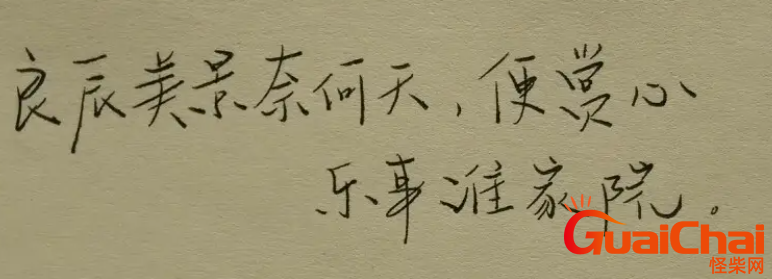 良辰美景奈何天,便赏心
乐事谁家院。
GuaiChai
怪柴网